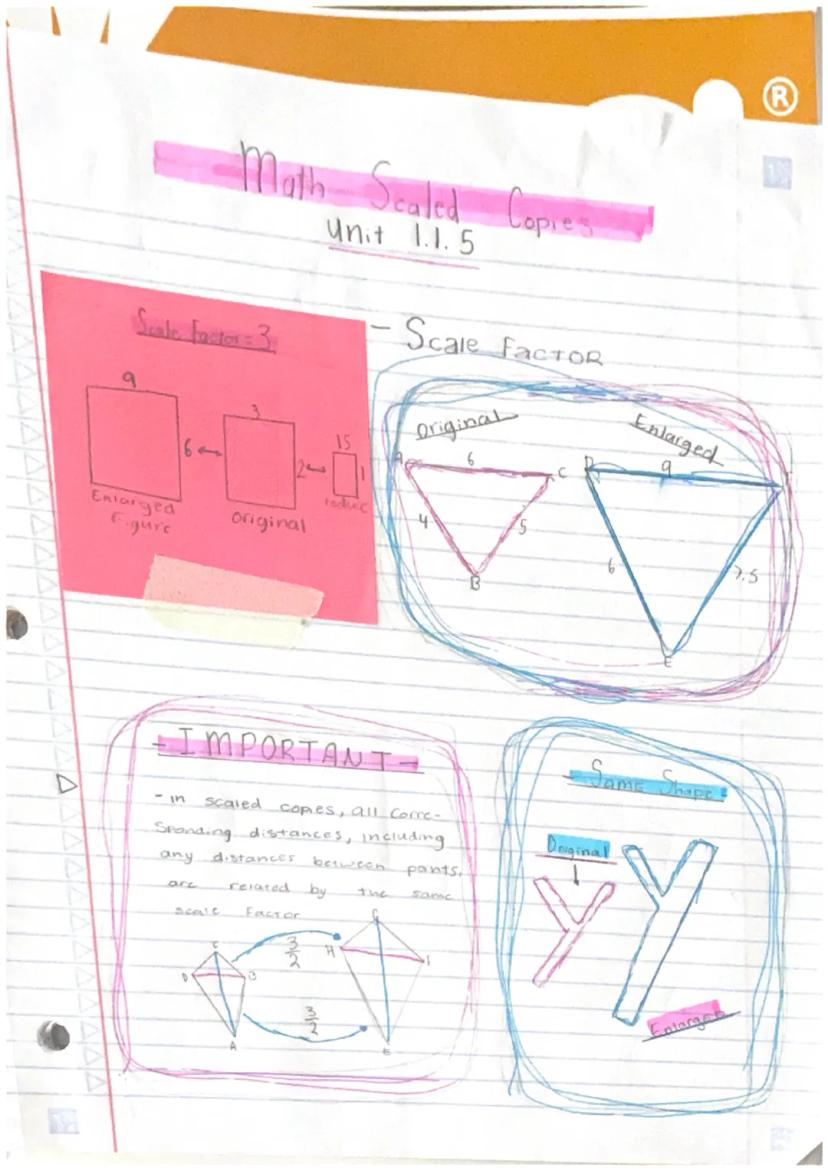 ®
Math Scaled Copies
Unit 1.1.5
Scale Factor = 3
9
6
Enlarged
Figure
3
2
Original
15
1
- Scale Factor
Original
A
6
C
4
5
B
Enlarged
D
9
6
7.5
E
- IMPORTANT -
- in scaled copies, all corre-
sponding distances, including
any distances between pants,
are related by the same
scale Factor
C
D
B
A
3/2
3/2
G
H
I
E
- Same Shape -
Original
Enlarged